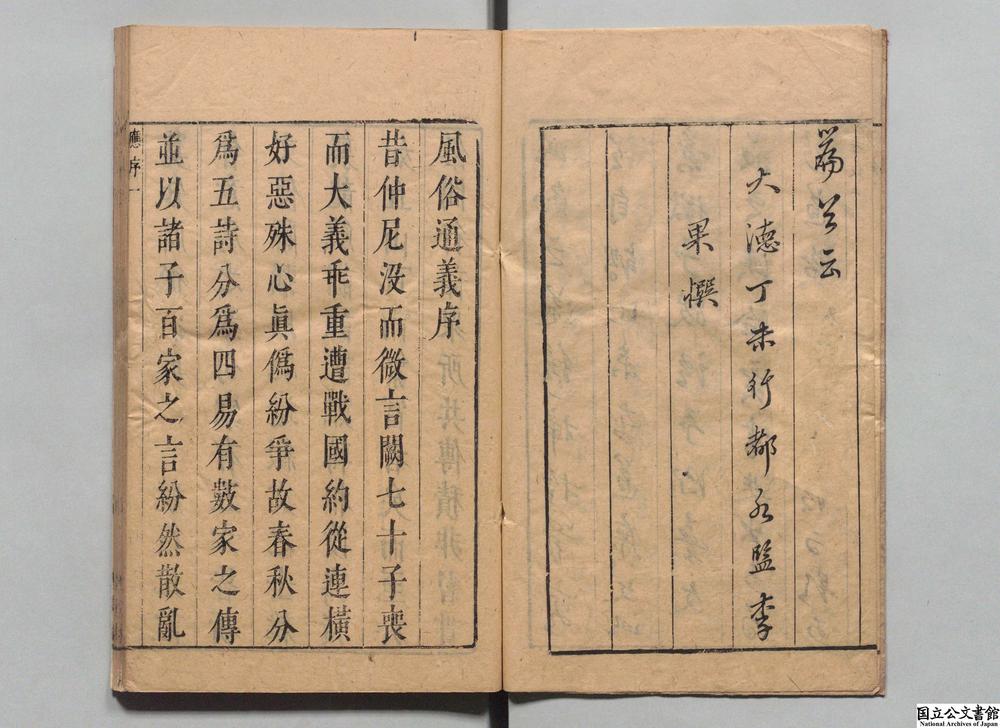 篇公云
大德丁未行都水監李
果撰
風俗通義序
昔仲尼没而微言闕七十子喪
而大義乖重遭戰國約從連橫
好惡殊心眞僞紛爭故春秋分
爲五詩分爲四易有數家之傳
並以諸子百家之言紛然散亂
應序一
国立公文書館
National Archives of Japan